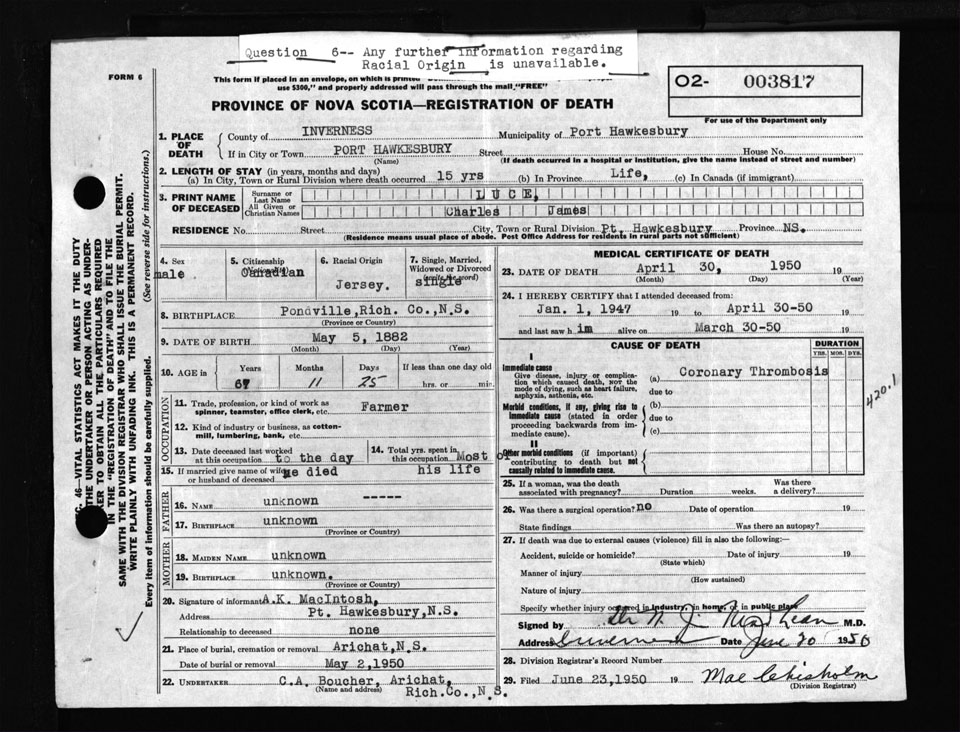 Question 6-- Any further information regarding
Racial Origin is unavailable.
FORM 6
This form if placed in an envelope, on which is printed
use $300," and properly addressed will pass through the mail "FREE"
O2- 003817
For use of the Department only
PROVINCE OF NOVA SCOTIA—REGISTRATION OF DEATH
1. PLACE OF DEATH
County of INVERNESS Municipality of Port Hawkesbury
If in City or Town PORT HAWKESBURY Street House No.
(Name) (If death occurred in a hospital or institution, give the name instead of street and number)
2. LENGTH OF STAY (in years, months and days)
(a) In City, Town or Rural Division where death occurred 15 yrs (b) In Province Life, (c) In Canada (if immigrant)
3. PRINT NAME OF DECEASED
Surname or Last Name LUCE,
All Given or Christian Names Charles James
RESIDENCE No. Street City, Town or Rural Division Pt. Hawkesbury Province NS.
(Residence means usual place of abode. Post Office Address for residents in rural parts not sufficient)
4. Sex male
5. Citizenship (Nationality) Canadian
6. Racial Origin Jersey.
7. Single, Married, Widowed or Divorced (write the word) single
8. BIRTHPLACE Pondville,Rich. Co.,N.S.
(Province or Country)
9. DATE OF BIRTH May 5, 1882
(Month) (Day) (Year)
10. AGE in Years 67 Months 11 Days 25 If less than one day old hrs. or min.
OCCUPATION
11. Trade, profession, or kind of work as spinner, teamster, office clerk, etc. Farmer
12. Kind of industry or business, as cotton-mill, lumbering, bank, etc.
13. Date deceased last worked at this occupation to the day he died
14. Total yrs. spent in this occupation Most of his life
15. If married give name of wife or husband of deceased
FATHER
16. NAME unknown -----
17. BIRTHPLACE unknown
(Province or Country)
MOTHER
18. MAIDEN NAME unknown
19. BIRTHPLACE unknown.
(Province or Country)
20. Signature of informant A.K. MacIntosh,
Address Pt. Hawkesbury,N.S.
Relationship to deceased none
21. Place of burial, cremation or removal Arichat,N.S.
Date of burial or removal May 2,1950
22. UNDERTAKER C.A. Boucher, Arichat,
(Name and address) Rich.Co.,N.S.
MEDICAL CERTIFICATE OF DEATH
23. DATE OF DEATH April 30, 1950 19
(Month) (Day) (Year)
24. I HEREBY CERTIFY that I attended deceased from:
Jan. 1, 1947 19 to April 30-50 19
and last saw h im alive on March 30-50 19
CAUSE OF DEATH DURATION
YRS. MOS. DYS.
I
Immediate cause (a) Coronary Thrombosis
Give disease, injury or complication which caused death, NOT the mode of dying, such as heart failure, asphyxia, asthenia, etc.
due to
Morbid conditions, if any, giving rise to immediate cause (stated in order proceeding backwards from immediate cause).
(b)
due to
(c)
II
Other morbid conditions (if important) contributing to death but not causally related to immediate cause.
420.1
25. If a woman, was the death associated with pregnancy? Duration weeks. Was there a delivery?
26. Was there a surgical operation? no Date of operation 19
State findings Was there an autopsy?
27. If death was due to external causes (violence) fill in also the following:—
Accident, suicide or homicide? Date of injury 19
(State which)
Manner of injury
(How sustained)
Nature of injury
Specify whether injury occurred in industry, in home, or in public place
Signed by M.D.
Address Inverness Date June 20 1950
28. Division Registrar's Record Number
29. Filed June 23,1950 19 Mae Chisholm
(Division Registrar)
46—VITAL STATISTICS ACT MAKES IT THE DUTY
THE UNDERTAKER OR PERSON ACTING AS UNDER-
TO OBTAIN ALL THE PARTICULARS REQUIRED
IN THE "REGISTRATION OF DEATH" AND TO FILE THE
SAME WITH THE DIVISION REGISTRAR WHO SHALL ISSUE THE BURIAL PERMIT.
WRITE PLAINLY WITH UNFADING INK. THIS IS A PERMANENT RECORD.
Every item of information should be carefully supplied. (See reverse side for instructions.)